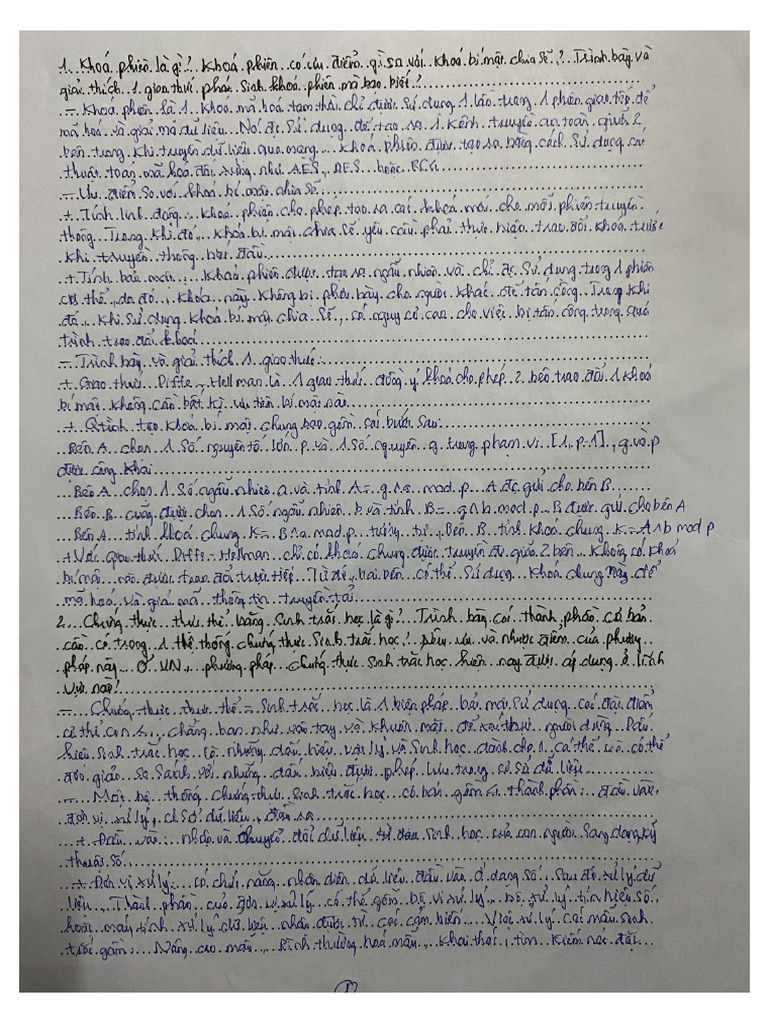 1. Khoá phiên là gì? Khoá phiên có ưu điểm gì so với khoá bí mật chia sẽ? Trình bày và
giải thích 1 giao thức phát sinh khoá phiên mà bạn biết?
- Khoá phiên là 1 khoá mã hoá tạm thời chỉ được sử dụng 1 lần trong 1 phiên giao tiếp để
mã hoá và giải mã dữ liệu. Nó đc sử dụng để tạo ra 1 kênh truyền an toàn giữa 2
bên trong khi truyền dữ liệu qua mạng. Khoá phiên được tạo ra bằng cách sử dụng các
thuật toán mã hoá đối xứng như AES, DES hoặc RC4
- Ưu điểm so với khoá bí mật chia sẽ
+ Tính linh động: khoá phiên cho phép tạo ra các khoá mới cho mỗi phiên truyền
thông. Trong khi đó, khoá bí mật chia sẽ yêu cầu phải thực hiện trao đổi khoá trước
khi truyền thông bắt đầu.
+ Tính bảo mật: khoá phiên được tạo ra ngẫu nhiên và chỉ đc sử dụng trong 1 phiên
cụ thể, do đó, khoá này không bị phơi bày cho người khác để tấn công. Trong khi
đó, khi sử dụng khoá bí mật chia sẽ, có nguy cơ cao cho việc bị tấn công trong quá
trình trao đổi khoá
- Trình bày và giải thích 1 giao thức:
+ Giao thức Diffie-Hellman là 1 giao thức đồng ý khoá cho phép 2 bên trao đổi 1 khoá
bí mật không cần bất kì ưu tiên bí mật nào
+ Qtrình tạo khoá bí mật chung bao gồm các bước sau:
Bên A chọn 1 số nguyên tố lớn p và 1 số nguyên g trong phạm vi [1, p-1], g và p
được công khai
Bên A chọn 1 số ngẫu nhiên a và tính A = g^a mod p. A đc gửi cho bên B
Bên B cũng được chọn 1 số ngẫu nhiên b và tính B = g^b mod p. B được gửi cho bên A
Bên A tính khoá chung K = B^a mod p, tương tự, bên B tính khoá chung K = A^b mod p
+ Với giao thức Diffe-Hellman chỉ có khoá chung được truyền đi giữa 2 bên. Không có khoá
bí mật nào được trao đổi trực tiếp. Từ đó, hai bên có thể sử dụng khoá chung này để
mã hoá và giải mã thông tin truyền tải
2. Chứng thực thực thể bằng sinh trắc học là gì? Trình bày các thành phần cơ bản
cần có trong 1 hệ thống chứng thực sinh trắc học? Nêu ưu và nhược điểm của phương
pháp này. Ở VN, phương pháp chứng thực sinh trắc học hiện nay được áp dụng ở lĩnh
vực nào?
- Chứng thực thực thể = sinh trắc học là 1 biện pháp bảo mật sử dụng các đặc điểm
chẳng hạn như vân tay và khuôn mặt để xác thực người dùng. Dấu
hiệu sinh trắc học là những dấu hiệu vật lý và sinh học dành cho 1 cá thể mà có thể
so sánh với những dấu hiệu được phép lưu trong cơ sở dữ liệu
- Một hệ thống chứng thực sinh trắc học cơ bản gồm 4 thành phần: đầu vào,
đơn vị xử lý, cơ sở dữ liệu, đầu ra
+ Đầu vào: nhập và chuyển đổi dữ liệu từ sinh học của con người sang dạng kỹ
thuật số
+ Đơn vị xử lý: có chức năng nhận diện dữ liệu đầu vào ở dạng số. Sau đó xử lý dữ
liệu. Thành phần của đơn vị xử lý có thể gồm bộ vi xử lý, bộ xử lý tín hiệu số,
hoặc máy tính xử lý dữ liệu nhận được từ các cảm biến. Việc xử lý các mẫu sinh
trắc gồm: Nâng cao mẫu, bình thường hoá mẫu, khai thác, tìm kiếm nét đặc